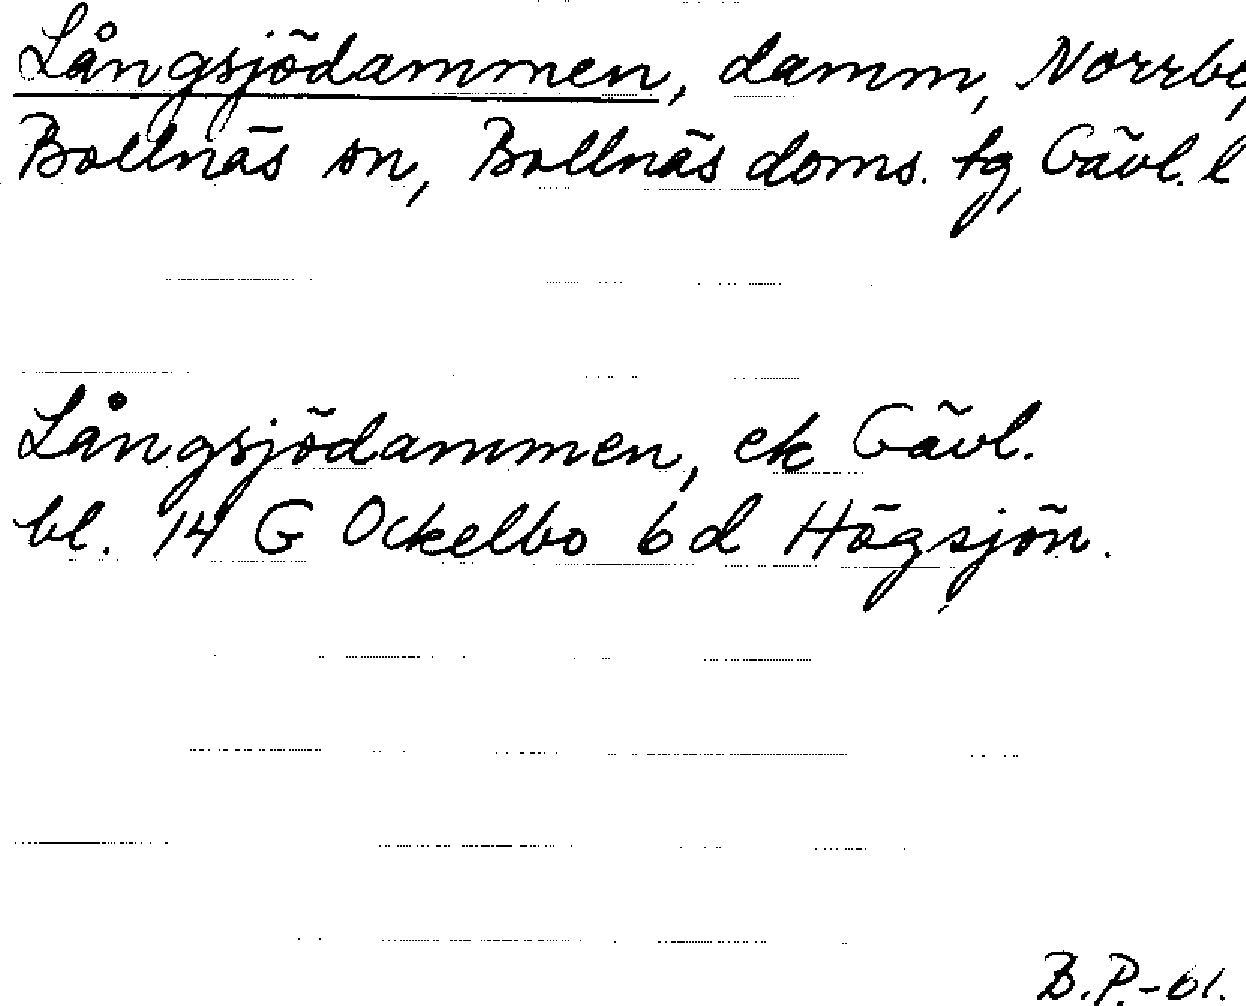 Långsjödammen, damm, Norrbo,
Bollnäs sn, Bollnäs doms. tg, Gävl. l
Långsjödammen, ek Gävl.
bl. 14 G Ockelbo 6 d Högsjön.
B.P.-61.